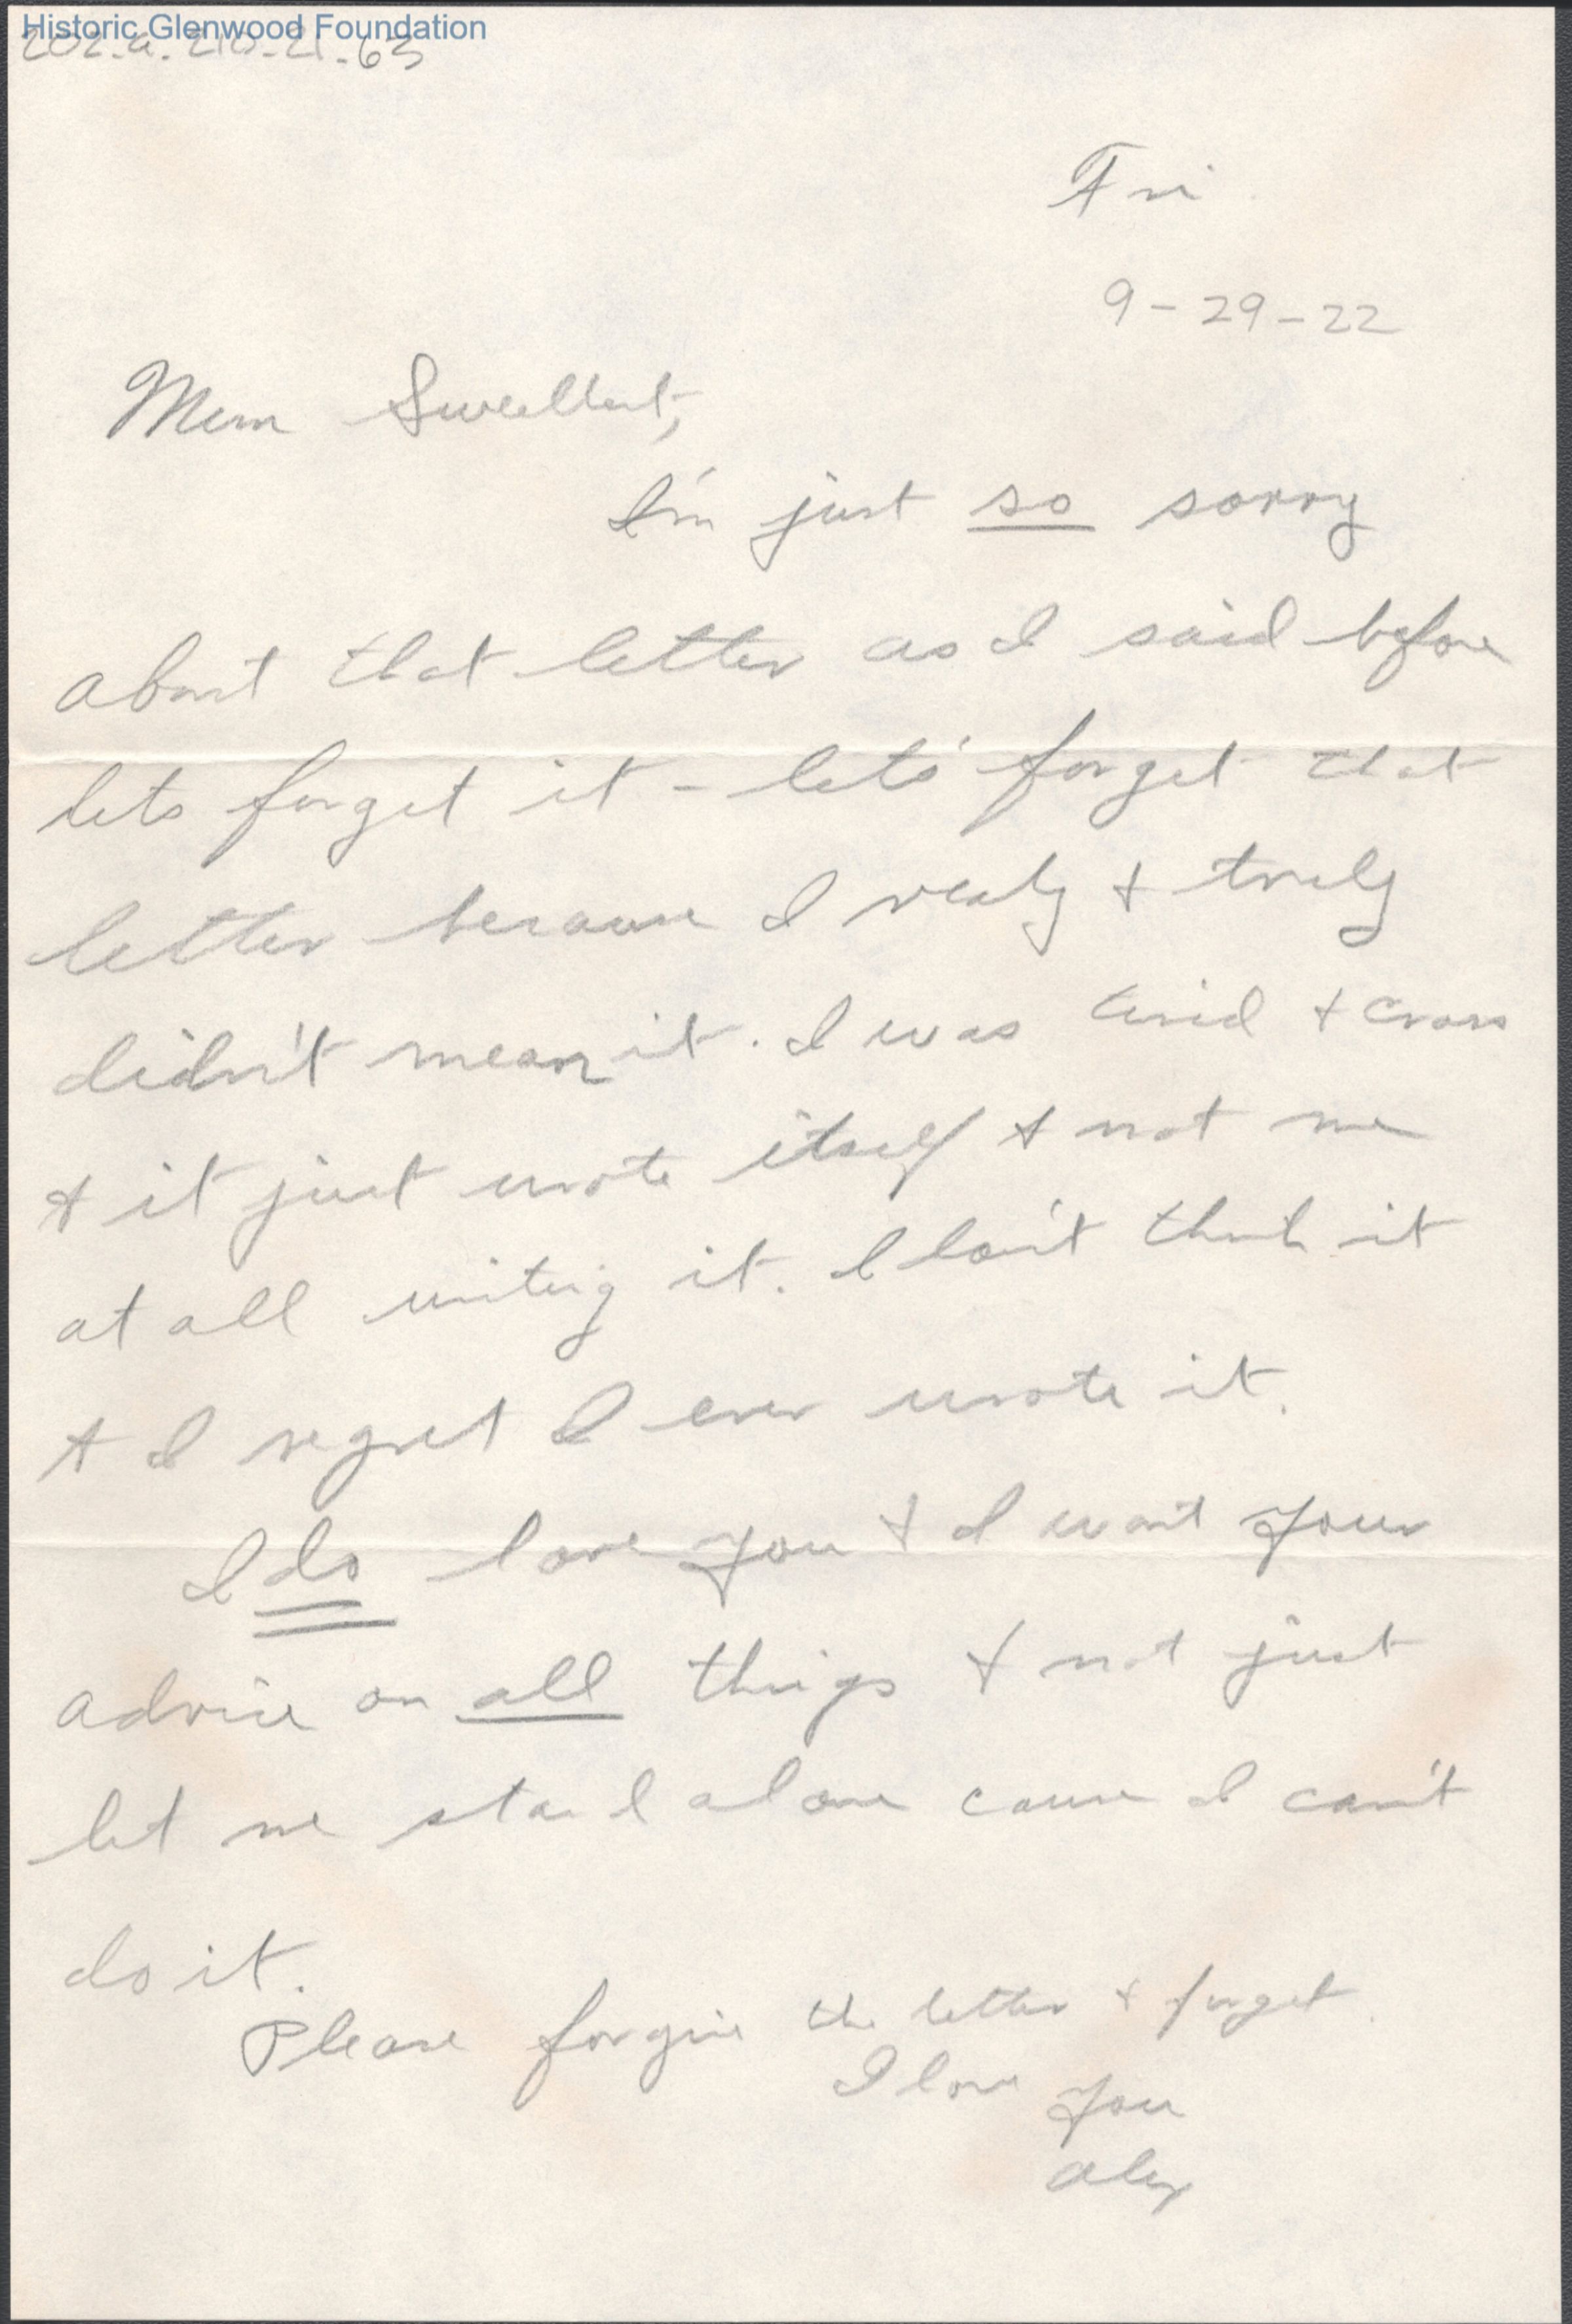 Historic Glenwood Foundation
202.a.210-21-63
Fri
9-29-22
Mem Sweetheart,
I'm just so sorry
about that letter as I said before
lets forget it - let's forget that
letter because I realy & truly
didn't mean it. I was tired & cross
& it just wrote itself & not me
at all writing it. I don't think it
& I regret I ever wrote it.
I do love you & I want your
advice on all things & not just
let me stand alone cause I can't
do it.
Please forgive the letter & forget.
I love
you
Alex